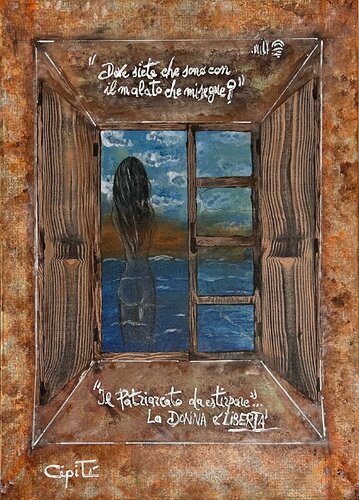 "Dove siete che sono con
il malato che mi segue?"
"Il Patriarcato da estirpare"...
La DONNA è LIBERTÀ
Cipitì